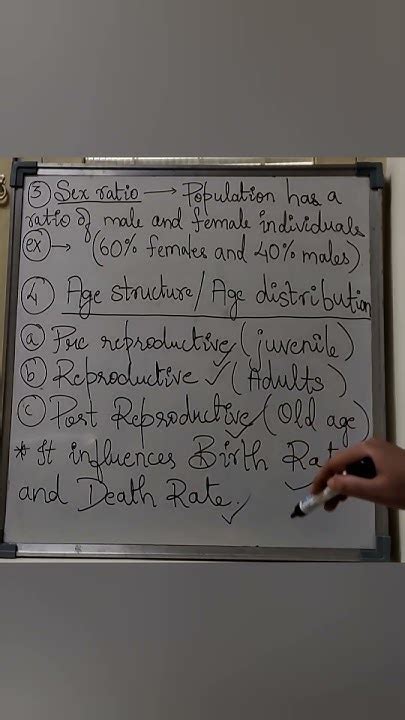 ③ Sex ratio → Population has a
ratio of male and female individuals
ex → (60% females and 40% males)
④ Age structure/Age distribution
ⓐ Pre reproductive (juvenile)
ⓑ Reproductive ✓ (Adults)
ⓒ Post Reproductive (Old age)
* It influences Birth Rate
and Death Rate.